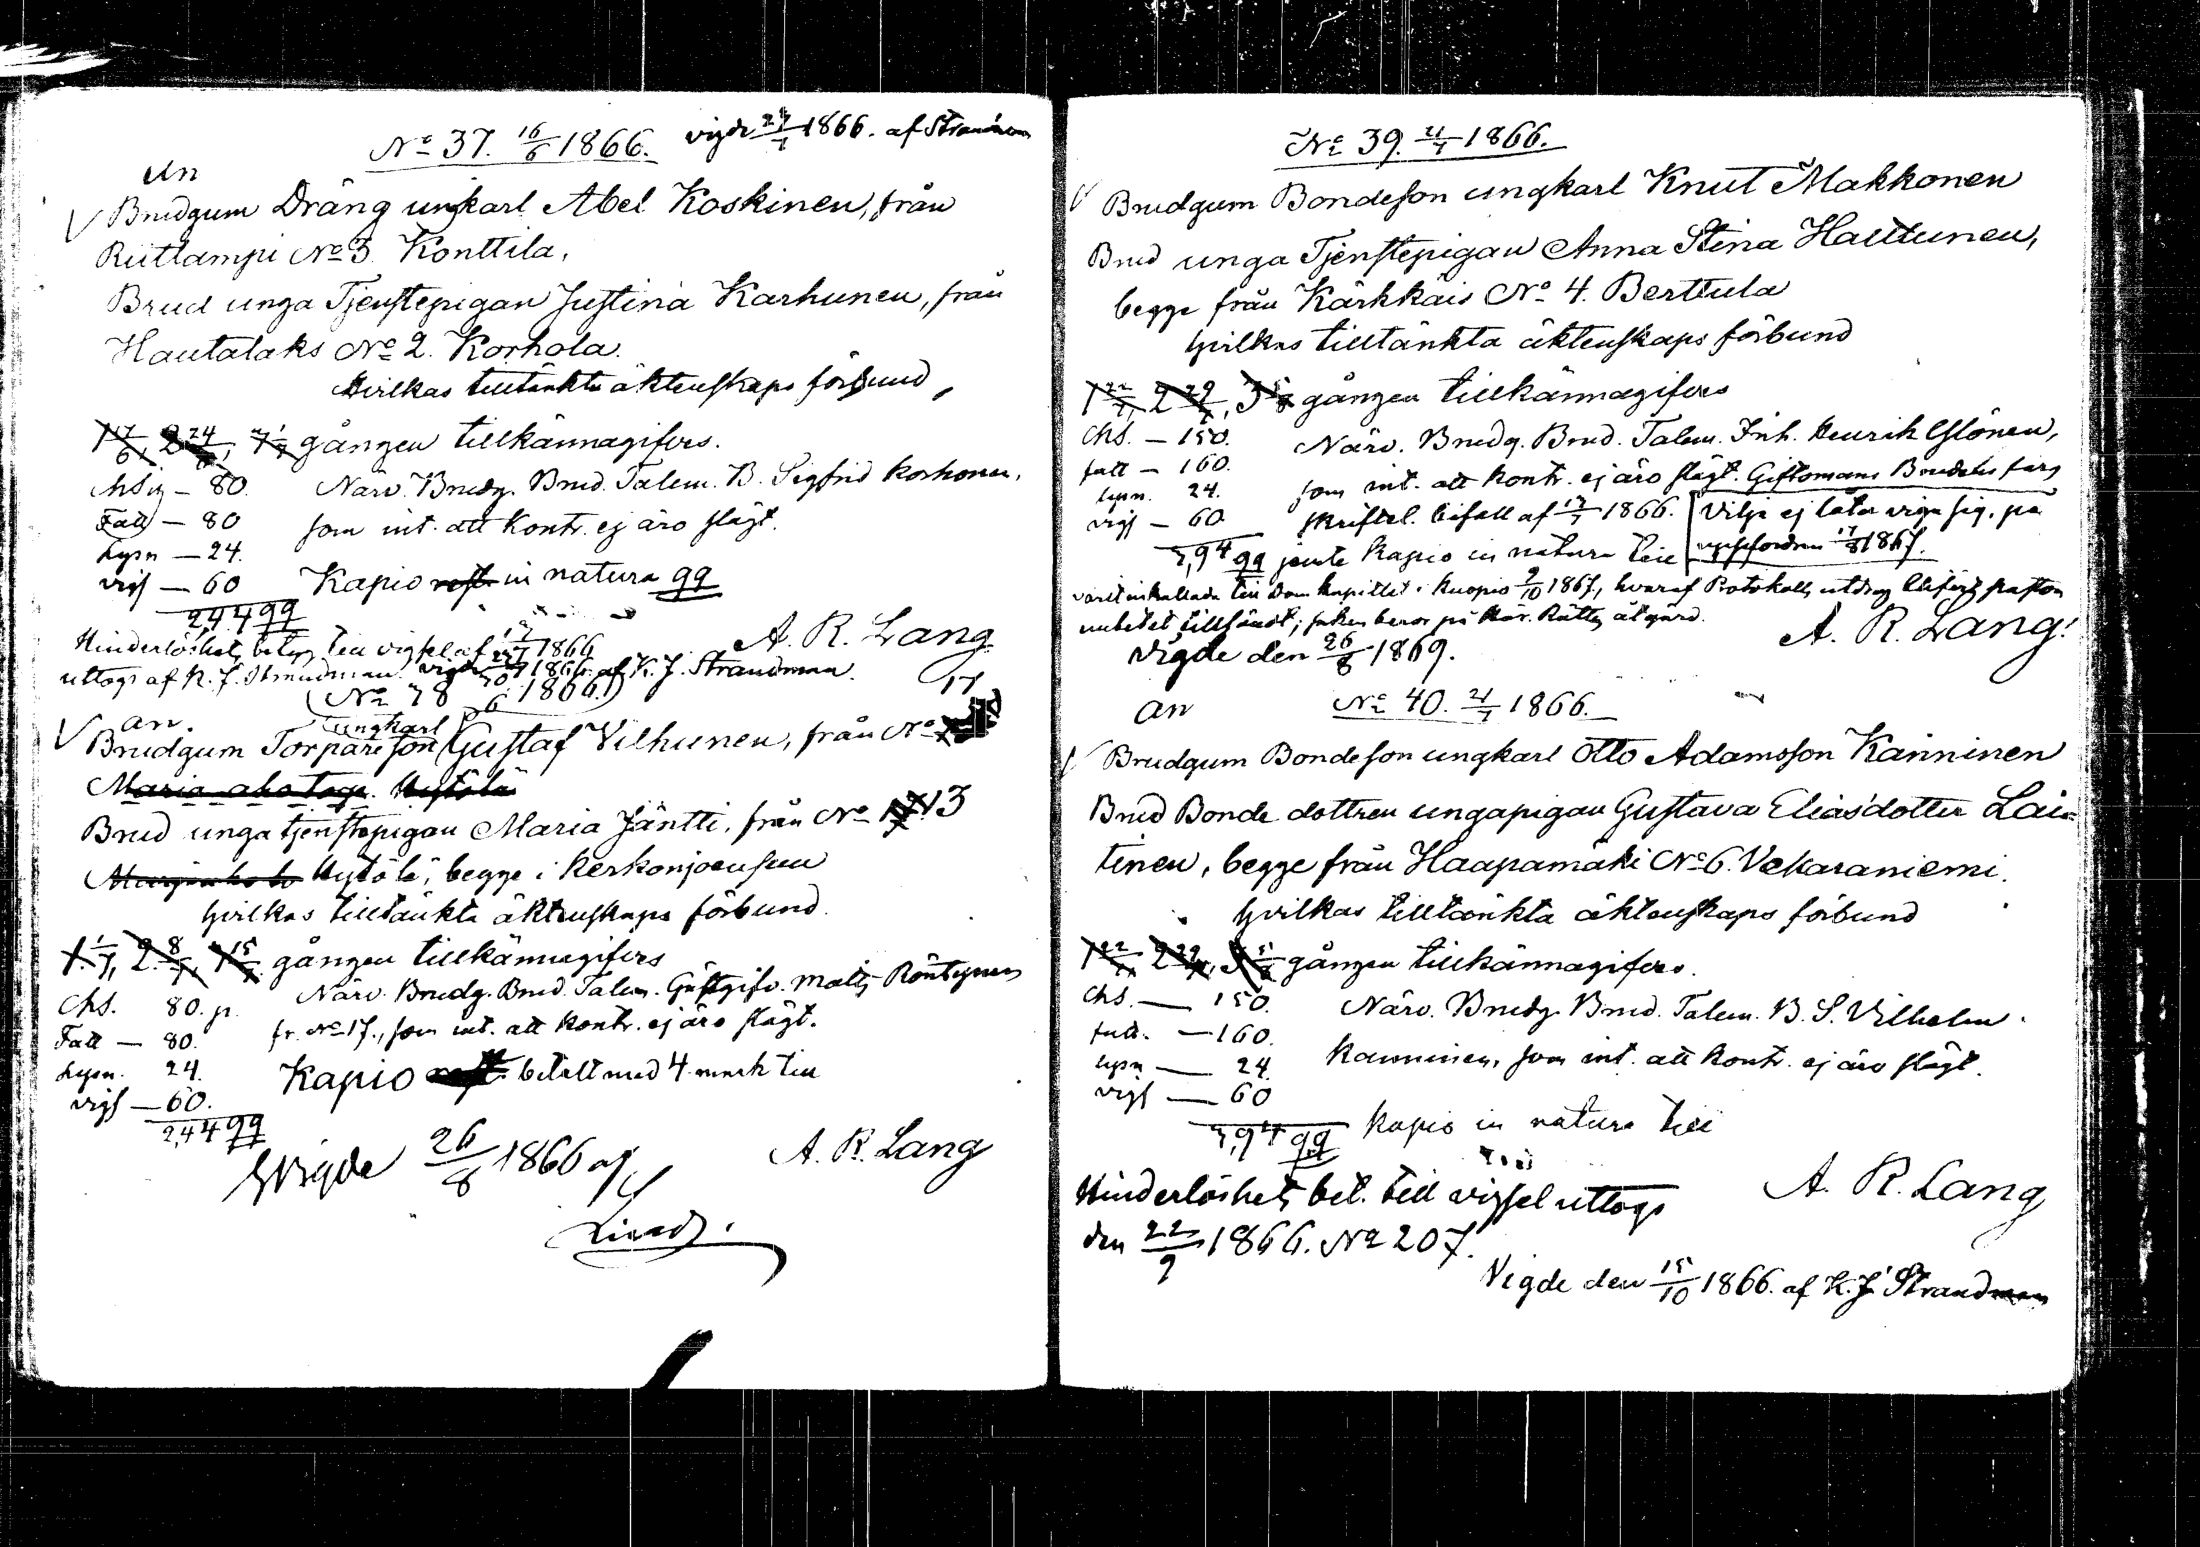 No 37. 16/6 1866. vigde 24/7 1866. af Strandman
an
Brudgum Dräng ungkarl Abel Koskinen, från
Riitlampi No 3 Konttila,
Brud unga Tjenstepigan Justina Karhunen, från
Hautalaks No 2. Korhola.
Hvilkas tilltänkta äktenskaps förbund,
1 17/6, 2 24/6, gången tillkännagifves.
Närv. Brudg. Brud. Talem. B. Sigfrid Korhonen,
80.
Fatt — 80 som int. att kontr. ej äro slägt.
Lysn — 24.
vigs — 60 Kapio in natura qq
2,44 qq
Hinderlöshets betyg till vigsel af 1866 A. R. Lang
uttogs af K. J. Strandman. vigde 1866 af K. J. Strandman.
No 38 1866.
an. ungkarl 17
Brudgum Torpareson Gustaf Vilhunen, från No
Maria aho torp. Hytölä
Brud unga tjenstepigan Maria Jäntti, från No 13
Hytölä, begge i Kerkonjoensuu
hvilkas tilltänkta äktenskaps förbund.
1. 1/7, 2. 8/7, 15/7 gången tillkännagifves
Chs. 80. p. Närv. Brudg. Brud. Talem. Gästgifv. Matts Röntynen
Fatt — 80. fr. No 17., som int. att kontr. ej äro slägt.
Lysn. 24. Kapio betalt med 4 mark till
vigs — 60.
2,44 qq
Vigde 26/8 1866 af A. R. Lang
No 39. 21/7 1866.
Brudgum Bondeson ungkarl Knut Makkonen
Brud unga Tjenstepigan Anna Stina Halttunen,
begge från Kärkkäis No 4. Berttula
hvilkas tilltänkta äktenskaps förbund
1 22/7, 2 29/7, 3 5/8 gången tillkännagifves
Chs. — 150. Närv. Brudg. Brud. Talem. Inh. Henrik
fatt — 160. som int. att kontr. ej äro slägt. Giftomans Brudens fars
lysn. 24. skriftel. bifall af 17/7 1866. Vilja ej låta viga sig, på
vigs — 60. uppfordran 17/8 1867.
3,94 qq Kapio in natura till
varit inkallade till Dom kapitlet i Kuopio 9/10 1867, hvaraf Protokolls utdrag
saken beror på Här. Rätts åtgärd.
Vigde den 26/8 1869. A. R. Lang.
an No 40. 21/7 1866.
Brudgum Bondeson ungkarl Otto Adamsson Kanninen
Brud Bonde dottren ungapigan Gustava Eliasdotter Lai-
tinen, begge från Haapamäki No 6. Vekaraniemi.
hvilkas tilltänkta äktenskaps förbund
1 22/7, 2 29/7, 3 5/8 gången tillkännagifves.
Chs. — 150. Närv. Brudg. Brud. Talem. B. S. Vilhelm
fatt. — 160. Kanninen, som int. att kontr. ej äro slägt.
lysn — 24.
vigs — 60
3,94 qq Kapio in natura till
Hinderlöshets bet. till vigsel uttogs A. R. Lang
den 22/9 1866. No 207.
Vigde den 15/10 1866. af K. J. Strandman